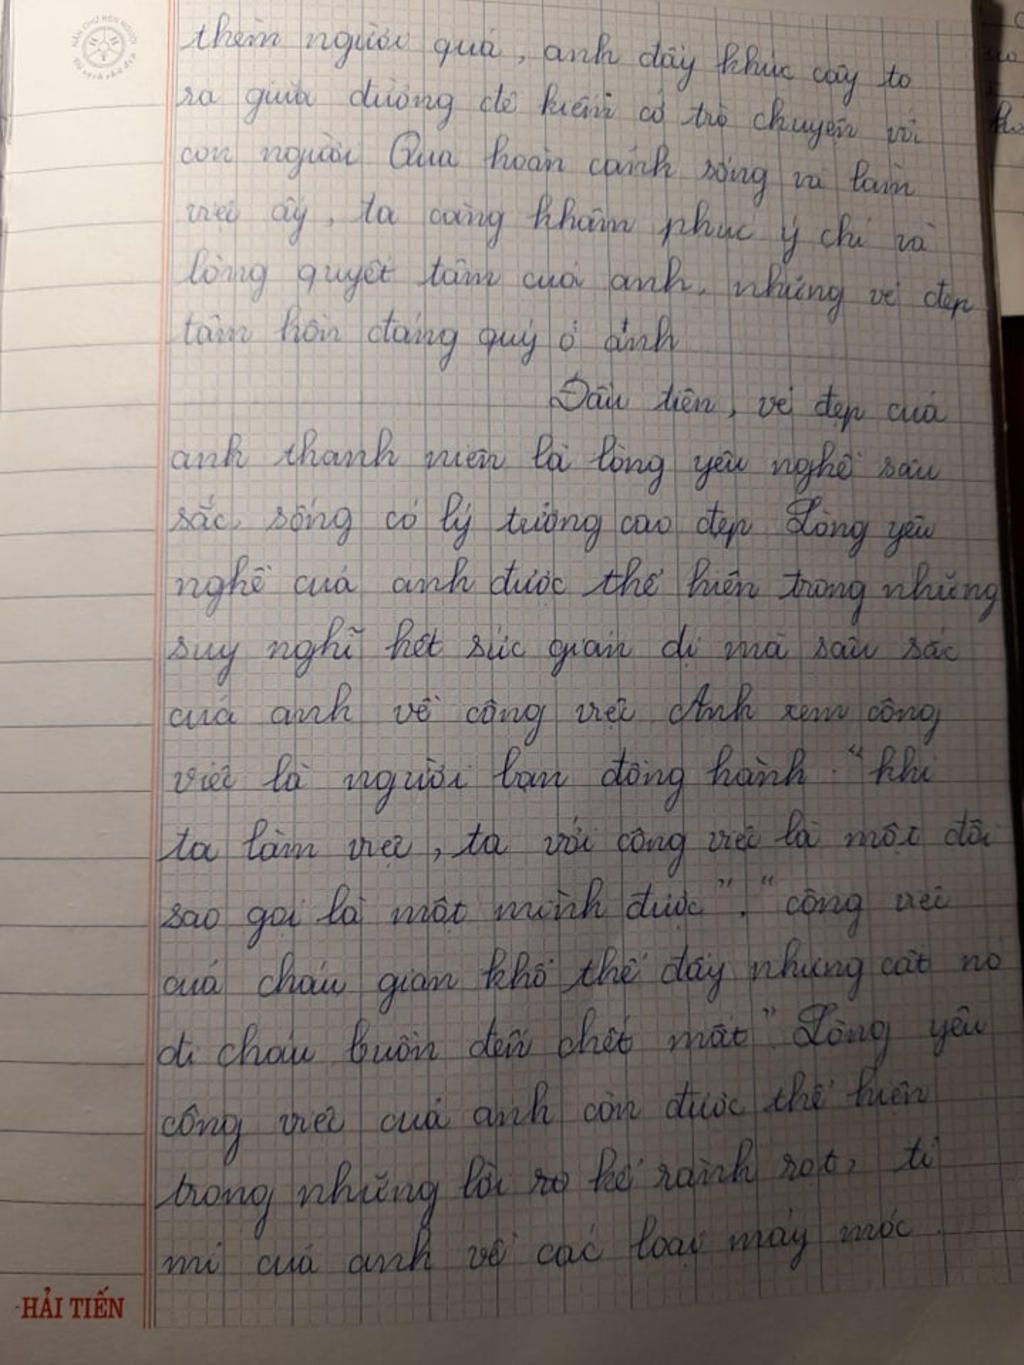 thèm người quá, anh đẩy khúc cây to
ra giữa đường để kiếm cớ trò chuyện với
con người Qua hoàn cảnh sống và làm
việc ấy, ta càng khâm phục ý chí và
lòng quyết tâm của anh, những vẻ đẹp
tâm hồn đáng quý ở anh
Đầu tiên, vẻ đẹp của
anh thanh niên là lòng yêu nghề sâu
sắc, sống có lý tưởng cao đẹp Lòng yêu
nghề của anh được thể hiện trong những
suy nghĩ hết sức giản dị mà sâu sắc
của anh về công việc Anh xem công
việc là người bạn đồng hành "khi
ta làm việc, ta với công việc là một đôi
sao gọi là một mình được". "công việc
của cháu gian khổ thế đấy nhưng cất nó
đi cháu buồn đến chết mất" Lòng yêu
công việc của anh còn được thể hiện
trong những lời kể rành rọt, tỉ
mỉ của anh về các loại máy móc.
HẢI TIẾN